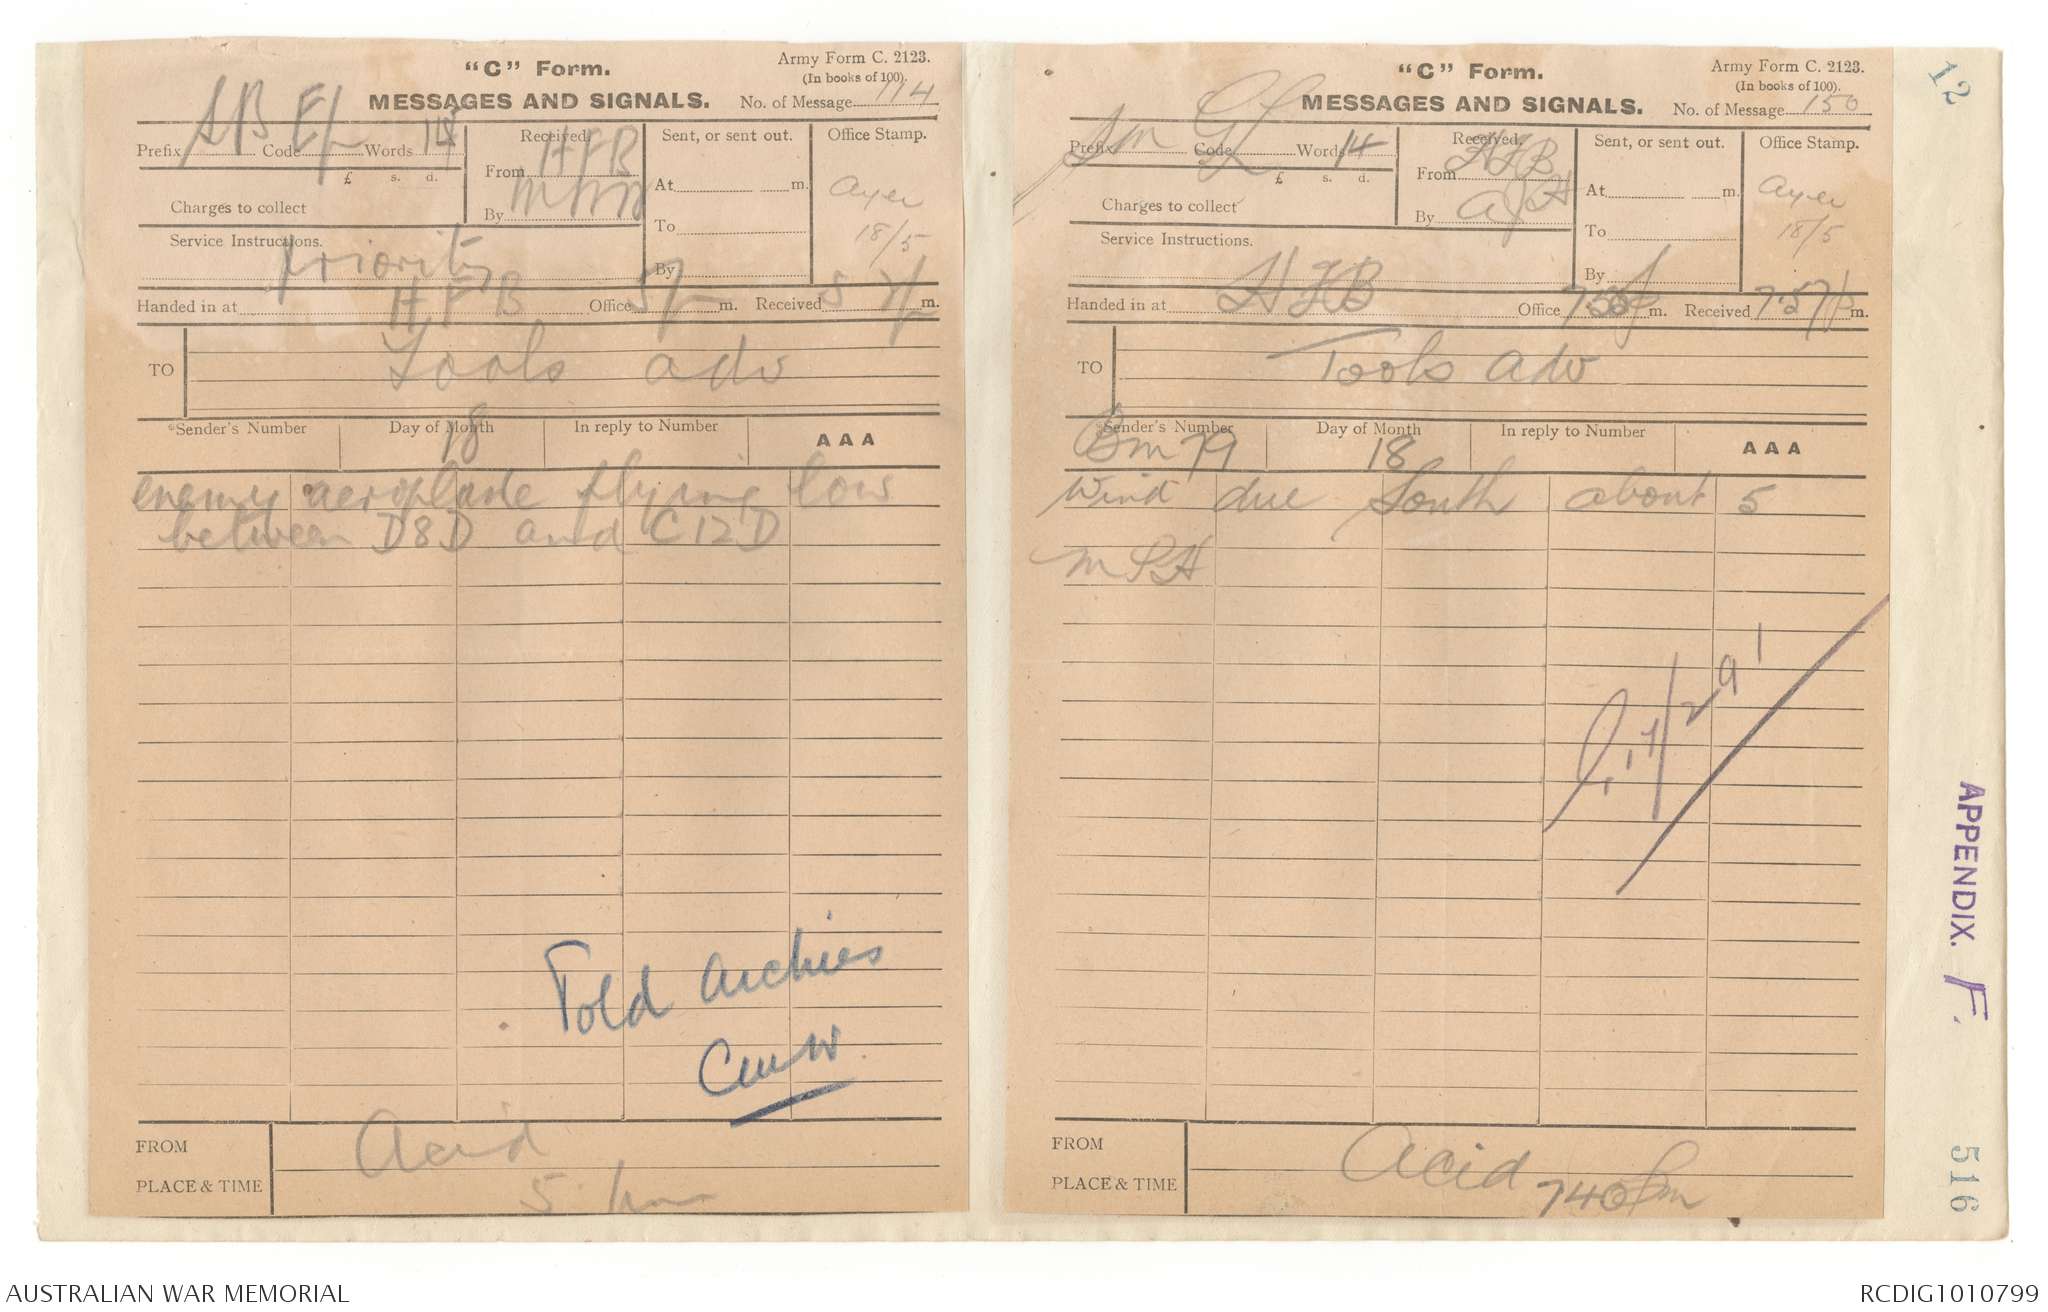 "C" Form.
Army Form C. 2123.
(In books of 100).
MESSAGES AND SIGNALS.
No. of Message 114
Prefix SB Code Words 14
Received.
From HFB
By
Sent, or sent out.
At m.
To
By
Office Stamp.
Ayer
18/5
£ s. d.
Charges to collect
Service Instructions.
Priority
Handed in at HFB Office 5 m. Received 5 m.
TO Tools adv
*Sender's Number
Day of Month 18
In reply to Number
AAA
enemy aeroplane flying low
between D8D and C12D
Told Archies
FROM Acid
PLACE & TIME 5 pm
"C" Form.
Army Form C. 2123.
(In books of 100).
MESSAGES AND SIGNALS.
No. of Message 150
Prefix Sm Code Words 14
Received.
From HFB
By AJH
Sent, or sent out.
At m.
To
By
Office Stamp.
Ayer
18/5
£ s. d.
Charges to collect
Service Instructions.
Handed in at HFB Office m. Received 7.57p m.
TO Tools adv
*Sender's Number Bm 79
Day of Month 18
In reply to Number
AAA
Wind due South about 5
MPH
FROM Acid
PLACE & TIME 740pm
12
APPENDIX. F.
516
AUSTRALIAN WAR MEMORIAL
RCDIG1010799